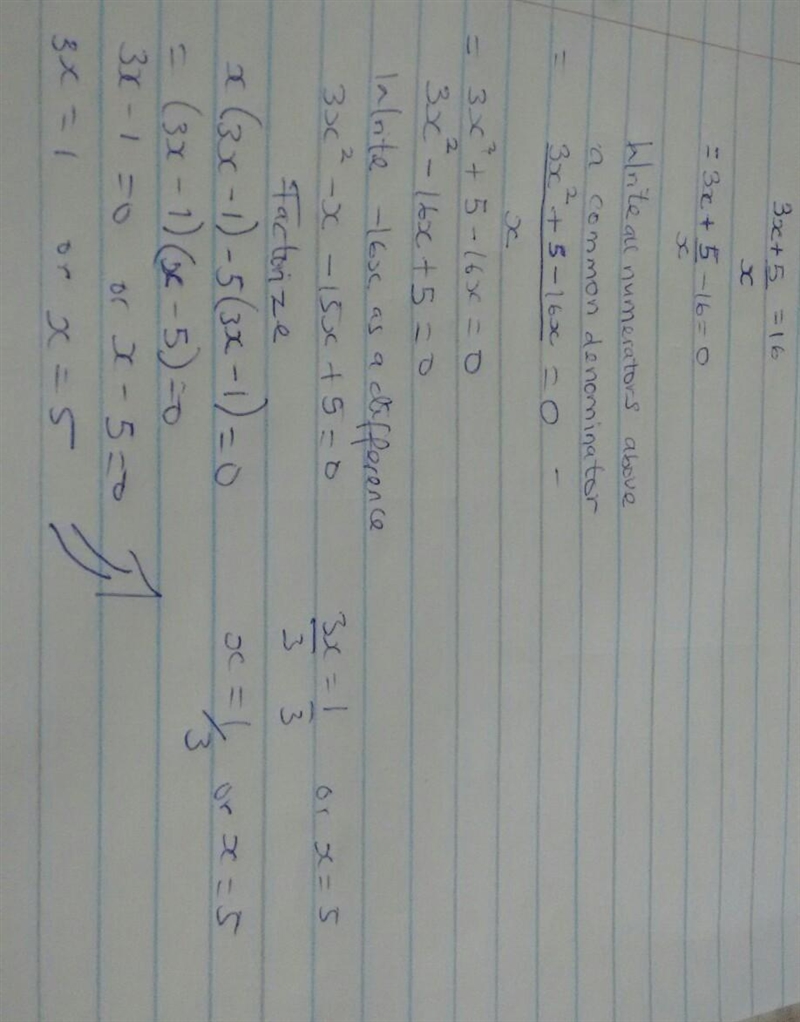 3x + 5/x = 16
= 3x + 5/x - 16 = 0
Write all numerators above
a common denominator
= (3x² + 5 - 16x)/x = 0 -
= 3x² + 5 - 16x = 0
3x² - 16x + 5 = 0
Write -16x as a difference
3x² - x - 15x + 5 = 0
Factorize
x(3x - 1) - 5(3x - 1) = 0
= (3x - 1)(x - 5) = 0
3x - 1 = 0 or x - 5 = 0
3x = 1 or x = 5
3x/3 = 1/3 or x = 5
x = 1/3 or x = 5